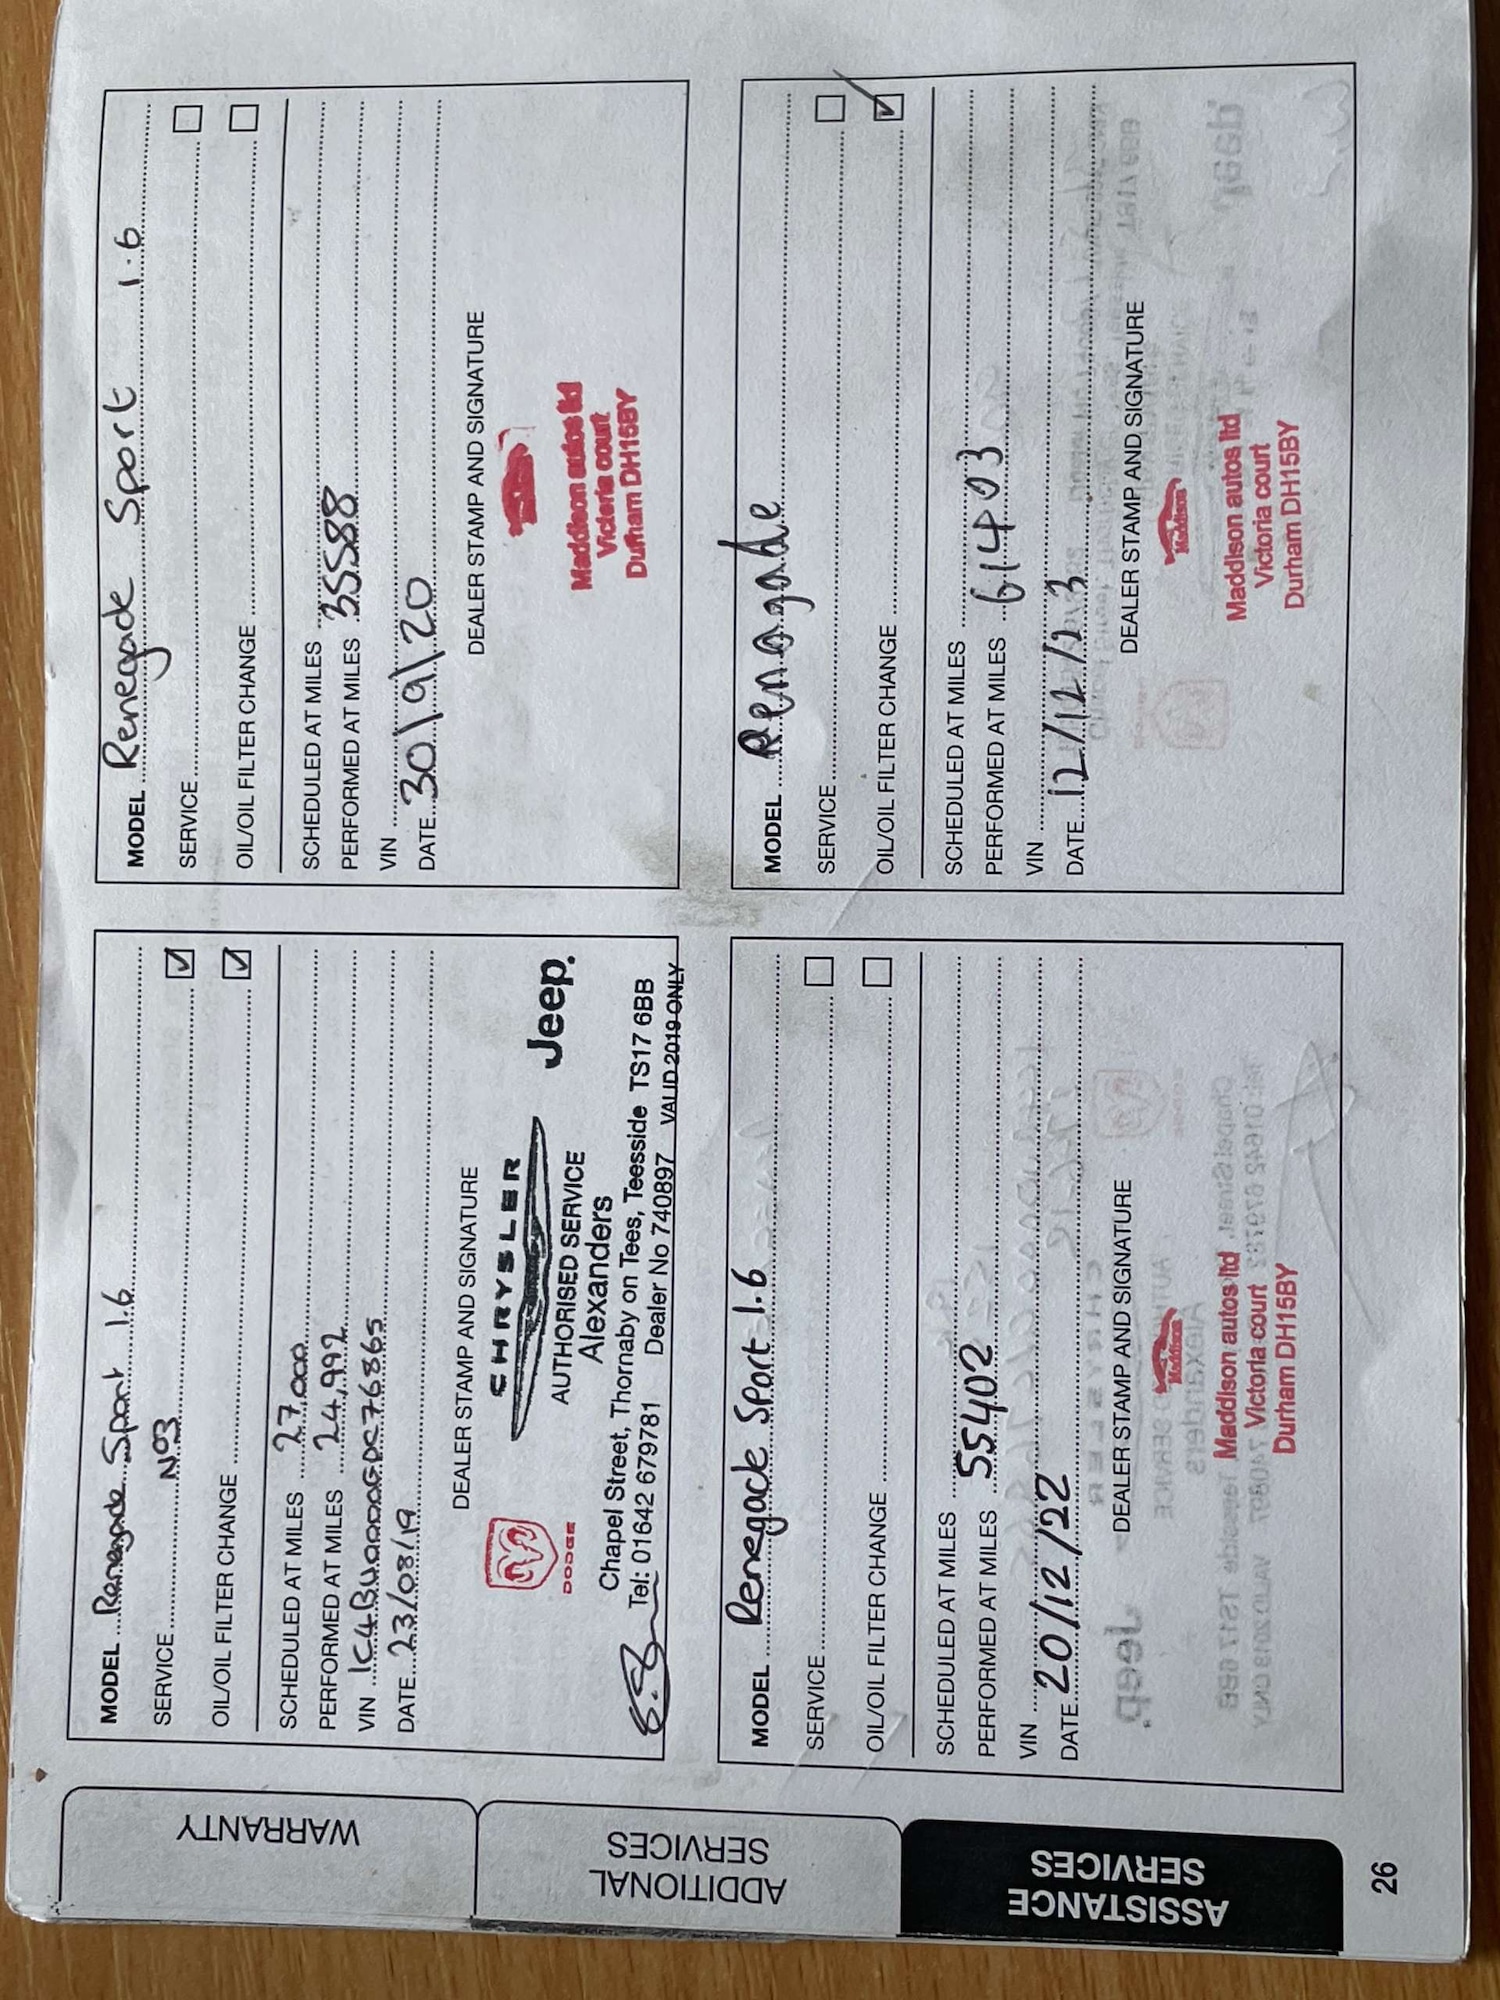 MODEL Renegade Sport 1.6
SERVICE No3 ☑
OIL/OIL FILTER CHANGE ☑
SCHEDULED AT MILES 27,000
PERFORMED AT MILES 24,992
VIN 1C4BU0000GPC76865
DATE 23/08/19
DEALER STAMP AND SIGNATURE
DODGE
CHRYSLER
Jeep
AUTHORISED SERVICE
Alexanders
Chapel Street, Thornaby on Tees, Teesside TS17 6BB
Tel: 01642 679781 Dealer No 740897 VALID 2019 ONLY
MODEL Renegade Sport 1.6
SERVICE ☐
OIL/OIL FILTER CHANGE ☐
SCHEDULED AT MILES
PERFORMED AT MILES 35588
VIN
DATE 30\9\20
DEALER STAMP AND SIGNATURE
Maddison autos ltd
Victoria court
Durham DH15BY
MODEL Renegade Sport 1.6
SERVICE ☐
OIL/OIL FILTER CHANGE ☐
SCHEDULED AT MILES
PERFORMED AT MILES 55402
VIN
DATE 20/12/22
DEALER STAMP AND SIGNATURE
Maddison
Maddison autos ltd
Victoria court
Durham DH15BY
MODEL Renagade
SERVICE ☐
OIL/OIL FILTER CHANGE ☑
SCHEDULED AT MILES
PERFORMED AT MILES 61403
VIN
DATE 12/12/23
DEALER STAMP AND SIGNATURE
Maddison
Maddison autos ltd
Victoria court
Durham DH15BY
WARRANTY
ADDITIONAL
SERVICES
ASSISTANCE
SERVICES
26